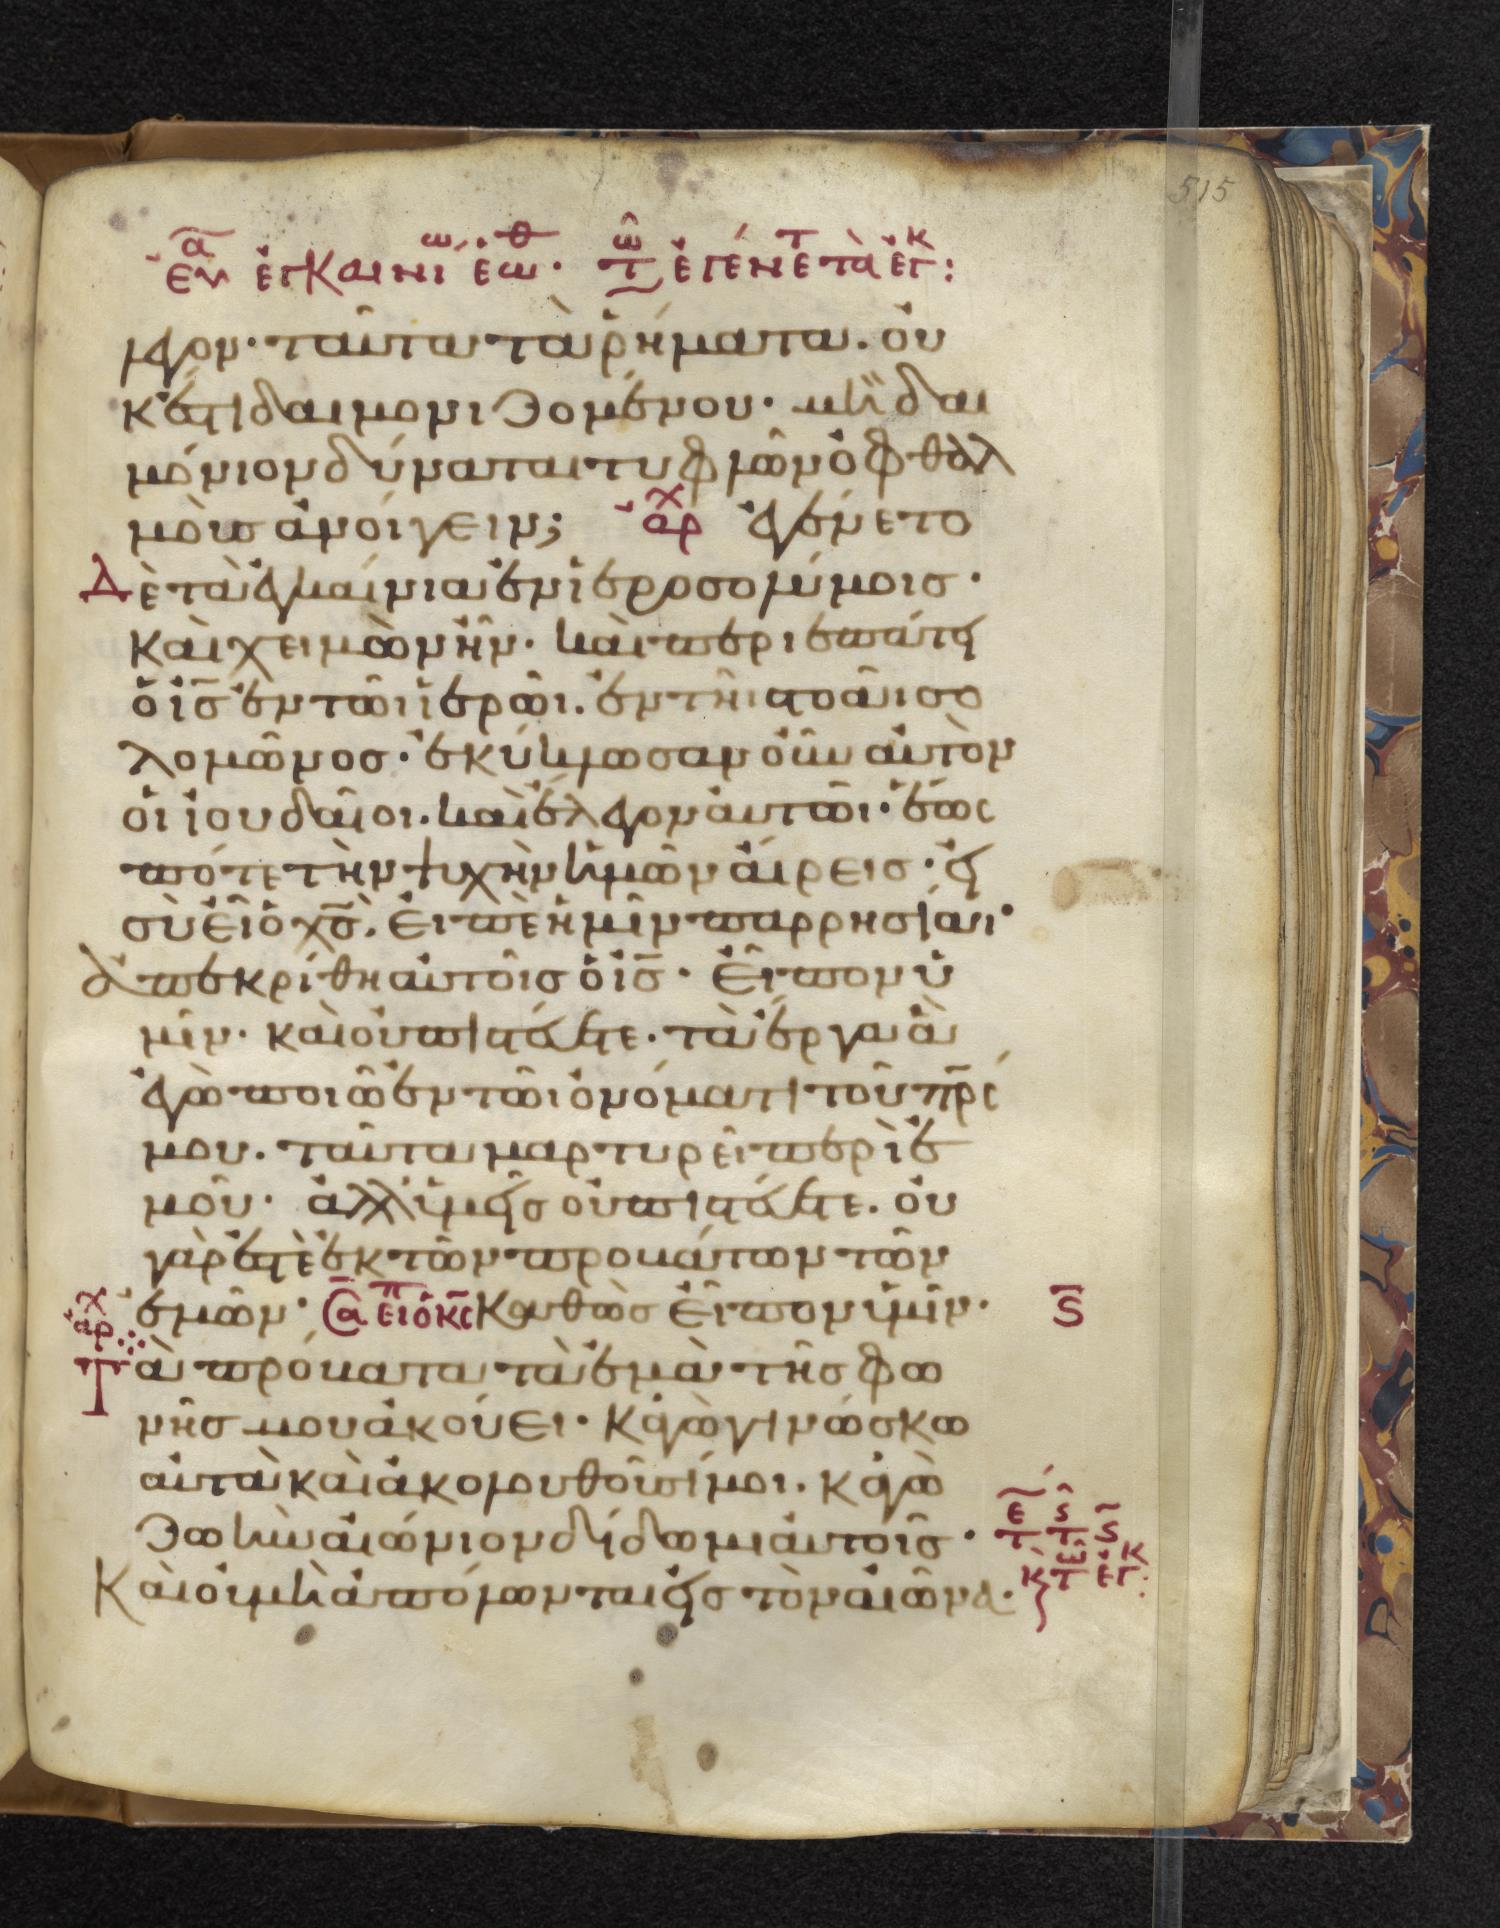 515
μεγον· ταῦτα τὰ ῥήματα. οὐ
κ ἔστι δαιμονιζομένου· μὴ δαι
μόνιον δύναται τυφλῶν ὀφθαλ
μοὺς ἀνοίγειν; ἀρχ ἐγένετο
δὲ τὰ ἐγκαίνια ἐν ἱεροσολύμοις·
καὶ χειμὼν ἦν· καὶ περιεπάτει
ὁ ἰς ἐν τῶι ἱερῶι. ἐν τῆι στοᾶι σο
λομῶνος· ἐκύκλωσαν οὖν αὐτὸν
οἱ ἰουδαῖοι. καὶ ἔλεγον αὐτῶι· ἕως
πότε τὴν ψυχὴν ἡμῶν αἴρεις· εἰ
σὺ εἶ ὁ χς. εἰπὲ ἡμῖν παρρησίαι·
ἀπεκρίθη αὐτοῖς ὁ ἰς· εἶπον ὑ
μῖν· καὶ οὐ πιστεύετε. τὰ ἔργα ἃ
ἐγὼ ποιῶ ἐν τῶι ὀνόματι τοῦ πρς
μου. ταῦτα μαρτυρεῖ περὶ ἐ
μοῦ· ἀλλ' ὑμεῖς οὐ πιστεύετε. οὐ
γὰρ ἐστὲ ἐκ τῶν προβάτων τῶν
ἐμῶν· εἶπ ὁ κς καθὼς εἶπον ὑμῖν· ς
ἀρχ τὰ πρόβατα τὰ ἐμὰ τῆς φω
νῆς μου ἀκούει· κἀγὼ γινώσκω
αὐτὰ καὶ ἀκολουθοῦσί μοι. κἀγὼ
ζωὴν αἰώνιον δίδωμι αὐτοῖς·
καὶ οὐ μὴ ἀπόλωνται εἰς τὸν αἰῶνα.